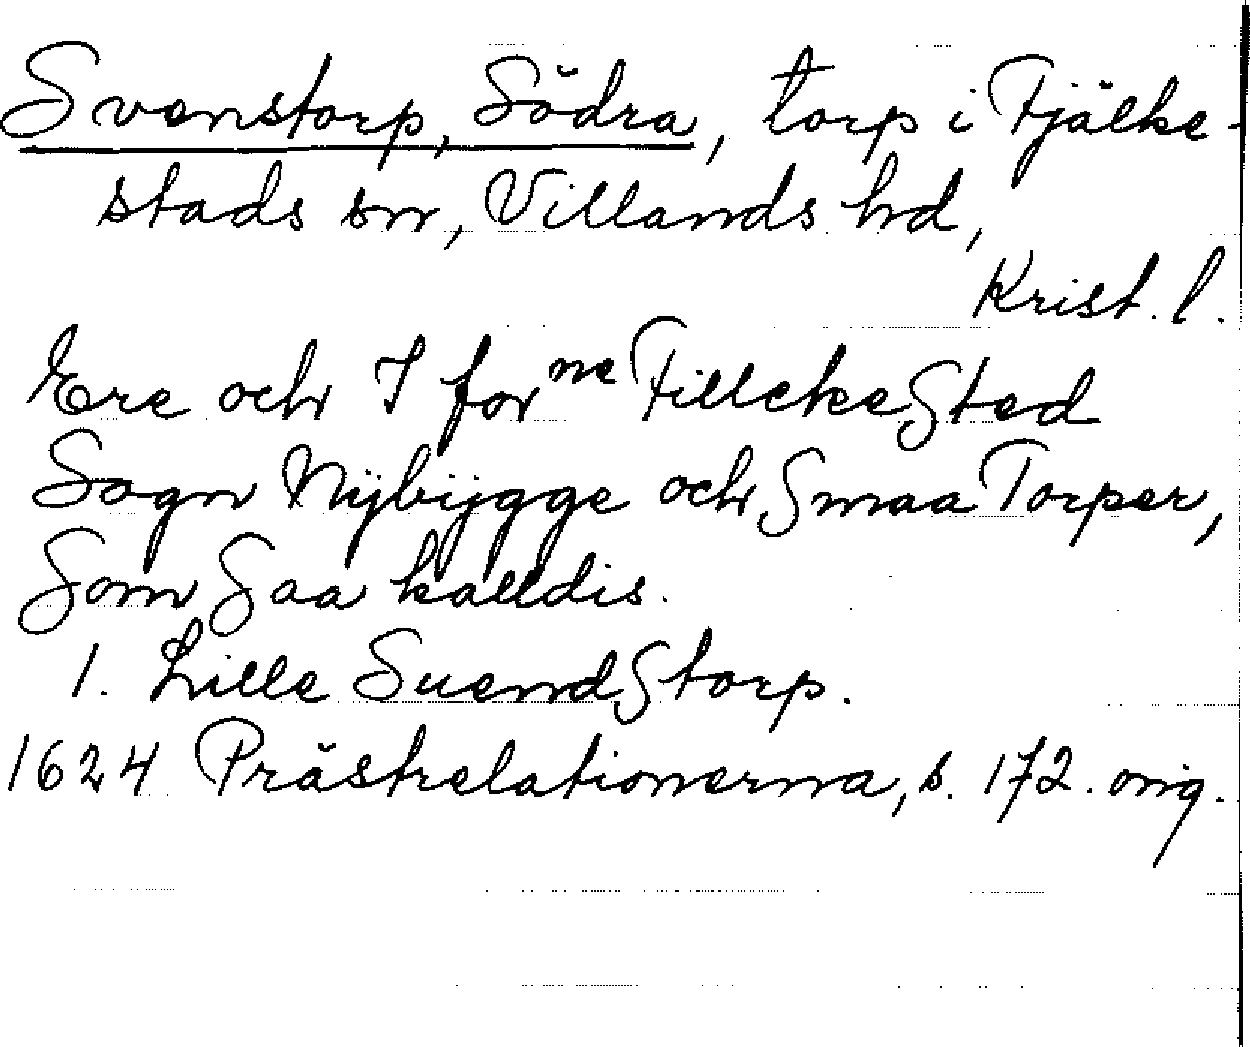 Svenstorp, Södra, torp i Fjälke-
stads sn, Villands hd,
Krist. l.
Ere och I for ne Fillcke Sted
Sogn Nÿbÿgge och Smaa Torper,
Som Saa kalldis.
1. Lille SuendStorp.
1624 Prästrelationerna, s. 172. orig.